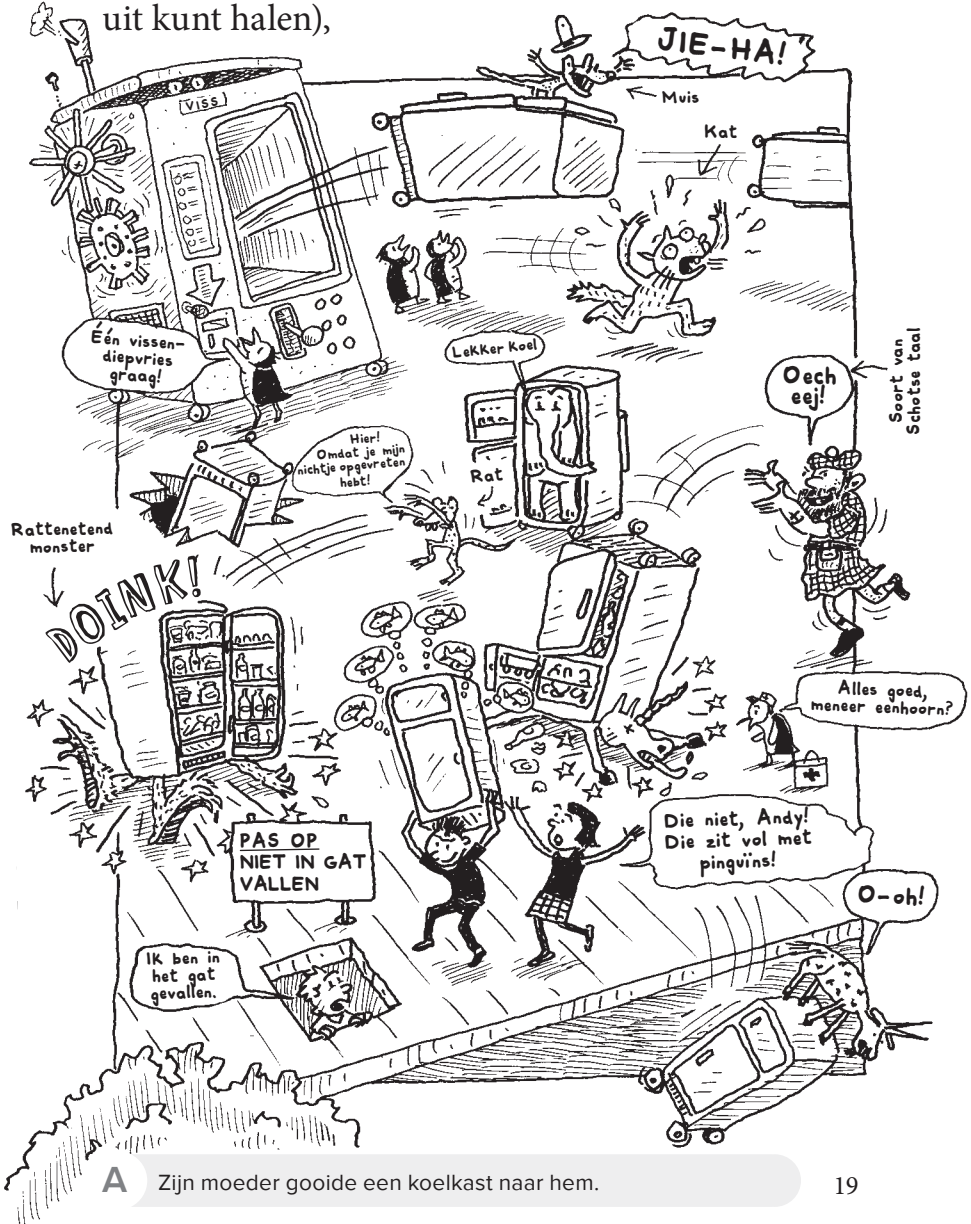 uit kunt halen),
JIE-HA!
Muis
VISS
Kat
Één vissen-
diepvries
graag!
Lekker koel
Oech
eej!
Soort van
Schotse taal
Hier!
Omdat je mijn
nichtje opgevreten
hebt!
Rat
Rattenetend
monster
DOINK!
Alles goed,
meneer eenhoorn?
PAS OP
NIET IN GAT
VALLEN
Die niet, Andy!
Die zit vol met
pinguïns!
O-oh!
Ik ben in
het gat
gevallen.
A Zijn moeder gooide een koelkast naar hem.
19